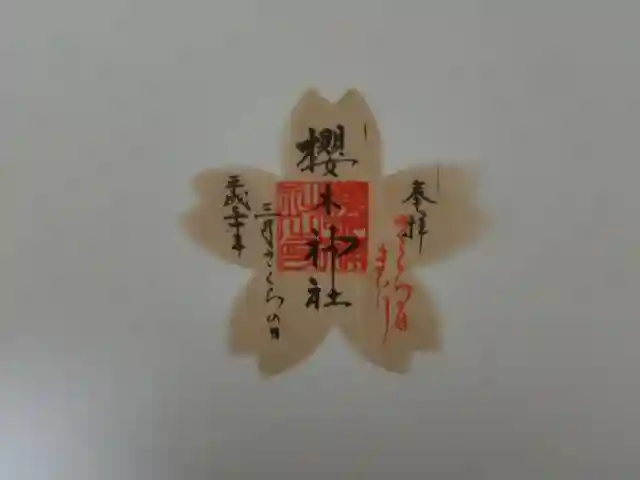 奉拝
さくらの日
まいり
櫻木神社
平成三十年
三月さくらの日